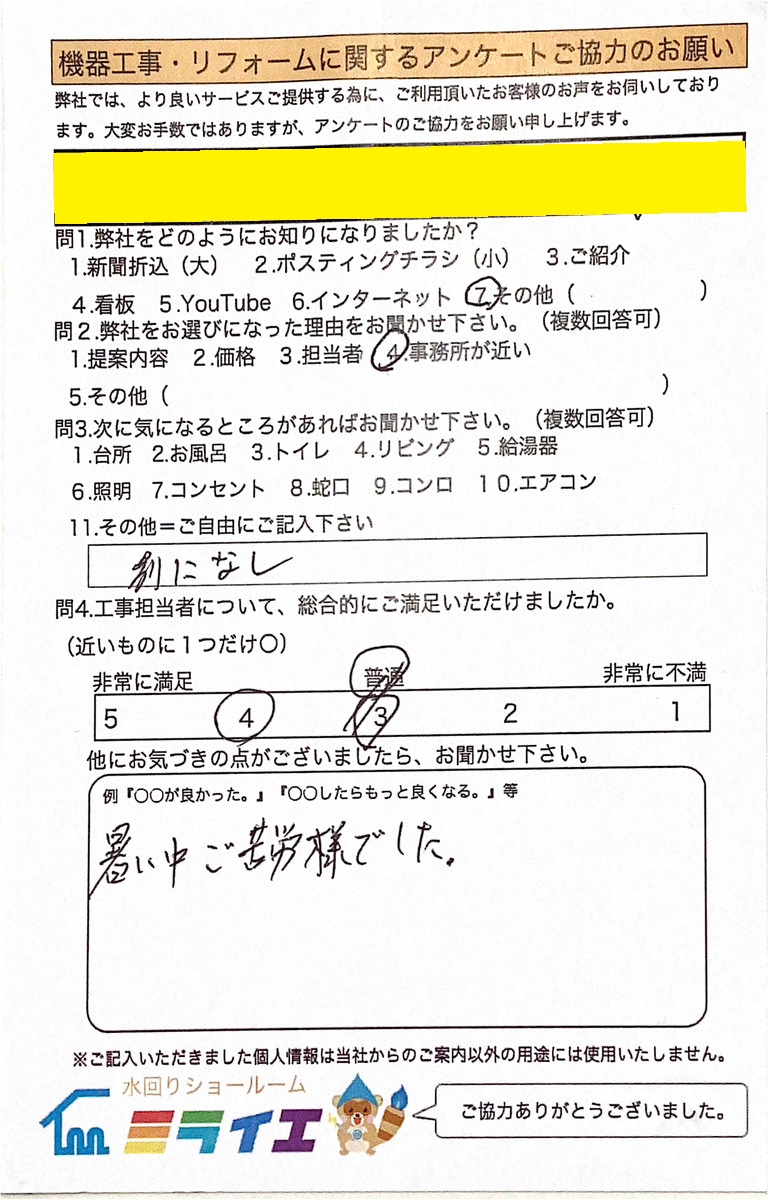 機器工事・リフォームに関するアンケートご協力のお願い
弊社では、より良いサービスご提供する為に、ご利用頂いたお客様のお声をお伺いしており
ます。大変お手数ではありますが、アンケートのご協力をお願い申し上げます。
問1.弊社をどのようにお知りになりましたか？
1.新聞折込（大） 2.ポスティングチラシ（小） 3.ご紹介
4.看板 5.YouTube 6.インターネット 7.その他（ ）
問2.弊社をお選びになった理由をお聞かせ下さい。（複数回答可）
1.提案内容 2.価格 3.担当者 4.事務所が近い
5.その他（ ）
問3.次に気になるところがあればお聞かせ下さい。（複数回答可）
1.台所 2.お風呂 3.トイレ 4.リビング 5.給湯器
6.照明 7.コンセント 8.蛇口 9.コンロ 10.エアコン
11.その他＝ご自由にご記入下さい
別になし
問4.工事担当者について、総合的にご満足いただけましたか。
（近いものに１つだけ〇）
非常に満足 普通 非常に不満
5 4 3 2 1
他にお気づきの点がございましたら、お聞かせ下さい。
例『〇〇が良かった。』『〇〇したらもっと良くなる。』等
暑い中ご苦労様でした。
※ご記入いただきました個人情報は当社からのご案内以外の用途には使用いたしません。
水回りショールーム
ミライエ
ご協力ありがとうございました。